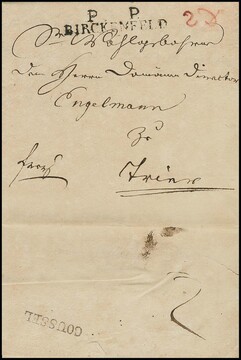 P. P.
BIRCKENFELD
Sr Wohlgebohren
Dem Herrn Domäne Director
Engelmann
zu
Trier
COUSEL